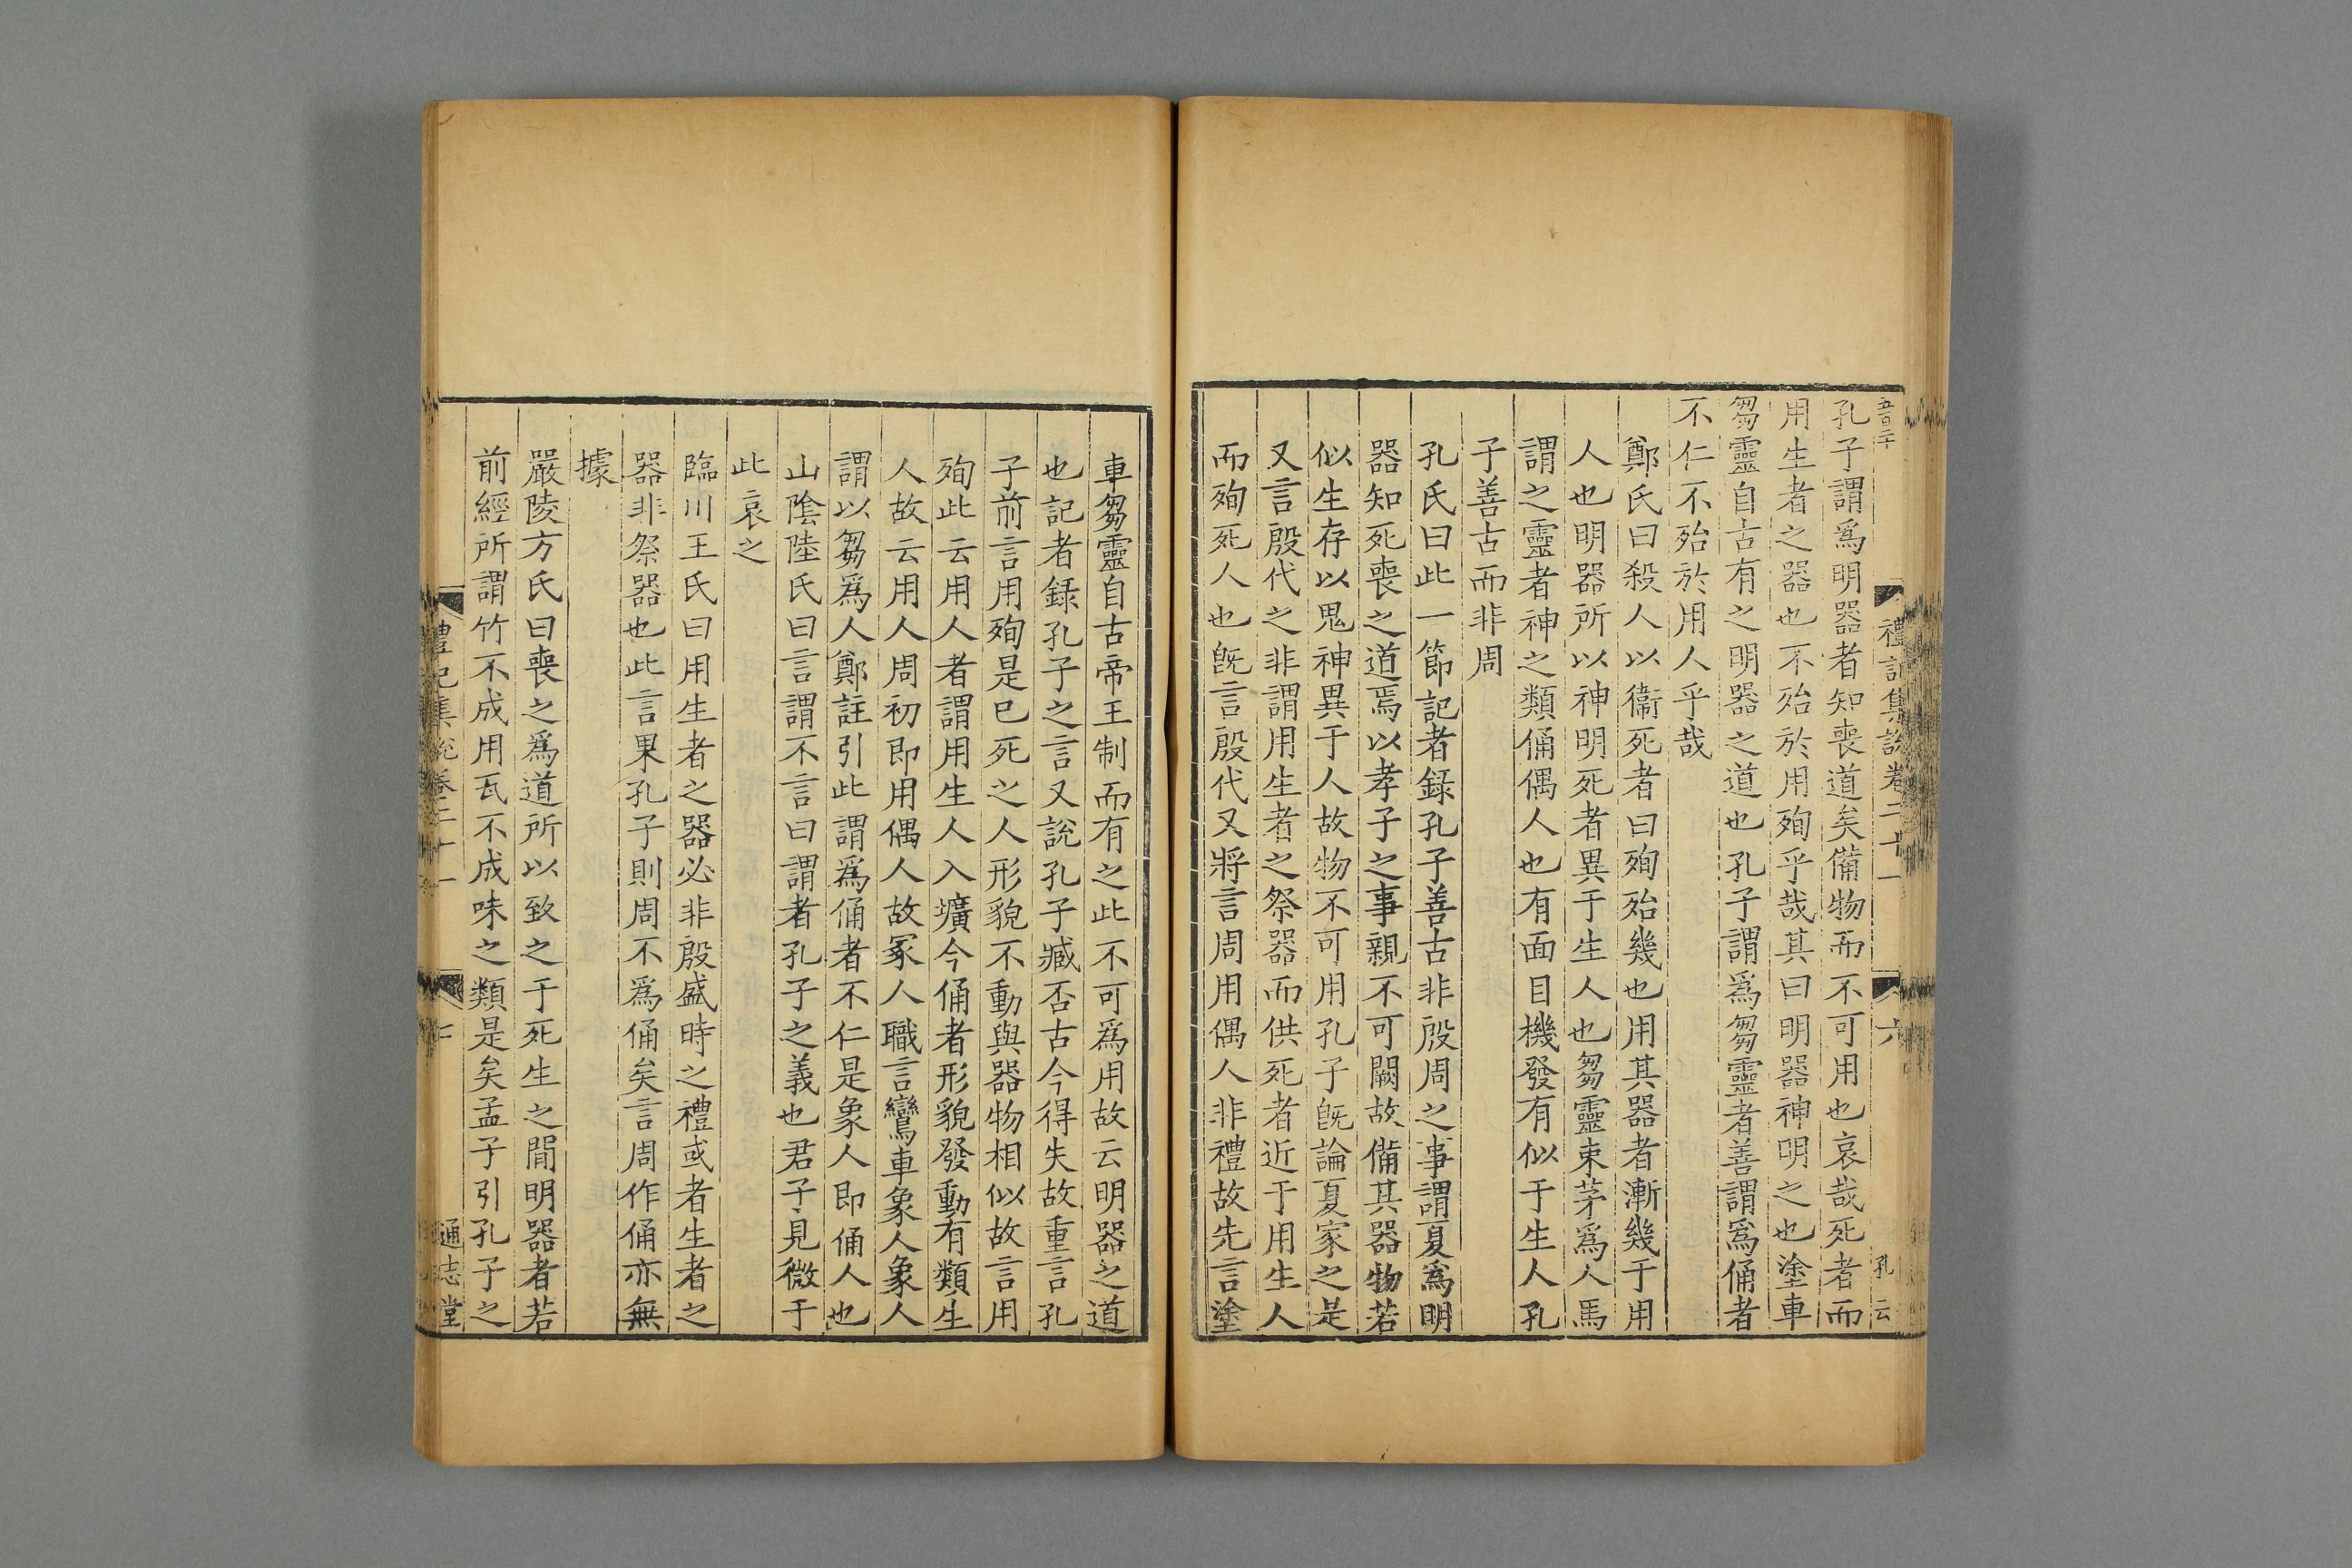 五百二十
禮記集說卷二十一
六
孔云
孔子謂爲明器者知喪道矣備物而不可用也哀哉死者而
用生者之器也不殆於用殉乎哉其曰明器神明之也塗車
芻靈自古有之明器之道也孔子謂爲芻靈者善謂爲俑者
不仁不殆於用人乎哉
鄭氏曰殺人以衞死者曰殉殆幾也用其器者漸幾于用
人也明器所以神明死者異于生人也芻靈束茅爲人馬
謂之靈者神之類俑偶人也有面目機發有似于生人孔
子善古而非周
孔氏曰此一節記者錄孔子善古非殷周之事謂夏爲明
器知死喪之道焉以孝子之事親不可闕故備其器物若
似生存以鬼神異于人故物不可用孔子旣論夏家之是
又言殷代之非謂用生者之祭器而供死者近于用生人
而殉死人也旣言殷代又將言周用偶人非禮故先言塗
車芻靈自古帝王制而有之此不可爲用故云明器之道
也記者錄孔子之言又說孔子臧否古今得失故重言孔
子前言用殉是已死之人形貌不動與器物相似故言用
殉此云用人者謂用生人入壙今俑者形貌發動有類生
人故云用人周初即用偶人故冢人職言鸞車象人象人
謂以芻爲人鄭註引此謂爲俑者不仁是象人即俑人也
山陰陸氏曰言謂不言曰謂者孔子之義也君子見微于
此哀之
臨川王氏曰用生者之器必非殷盛時之禮或者生者之
器非祭器也此言果孔子則周不爲俑矣言周作俑亦無
據
嚴陵方氏曰喪之爲道所以致之于死生之間明器者若
前經所謂竹不成用瓦不成味之類是矣孟子引孔子之
禮記集說卷二十一
七
通志堂